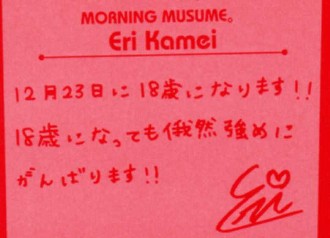 MORNING MUSUME。
Eri Kamei
12月23日に18歳になります!!
18歳になっても俄然強めに
がんばります!!